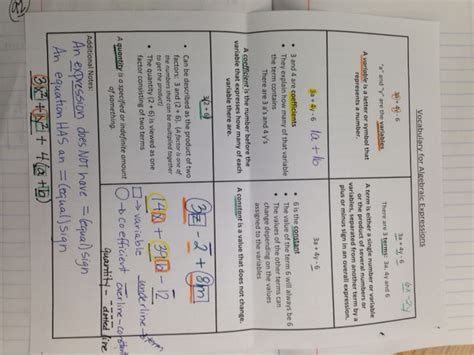 Vocabulary for Algebraic Expressions
3x + 4y - 6
"x" and "y" are the variables.
A variable is a letter or symbol that
represents a number.
3x + 4y - 6
6x - 2y
There are 3 terms: 3x, 4y and 6
A term is either a single number or variable
or the product of several numbers or
variables, separated from another term by a
plus or minus sign in an overall expression.
3x + 4y - 6
3 and 4 are coefficients
They explain how many of that variable
the term contains
There are 3 x's and 4 y's
A coefficient is the number before the
variable that expresses how many of each
variable there are.
3x + 4y - 6
6 is the constant
The value of the term 6 will always be 6
The values of the other terms can
change depending on the values
assigned to the variables
A constant is a value that does not change.
3(2 + 6)
Can be described as the product of two
factors: 3 and (2 + 6). (A factor is one of
the numbers that can be multiplied together
to get the product)
The quantity (2 + 6) is viewed as one
factor consisting of two terms
A quantity is a specified or indefinite amount
of something.
3z - 2 + 8m
- 12
variable
underline
coefficient
overline
quantity - dotted line
Additional Notes:
An expression does NOT have = (equal) sign
An equation HAS an = (equal) sign